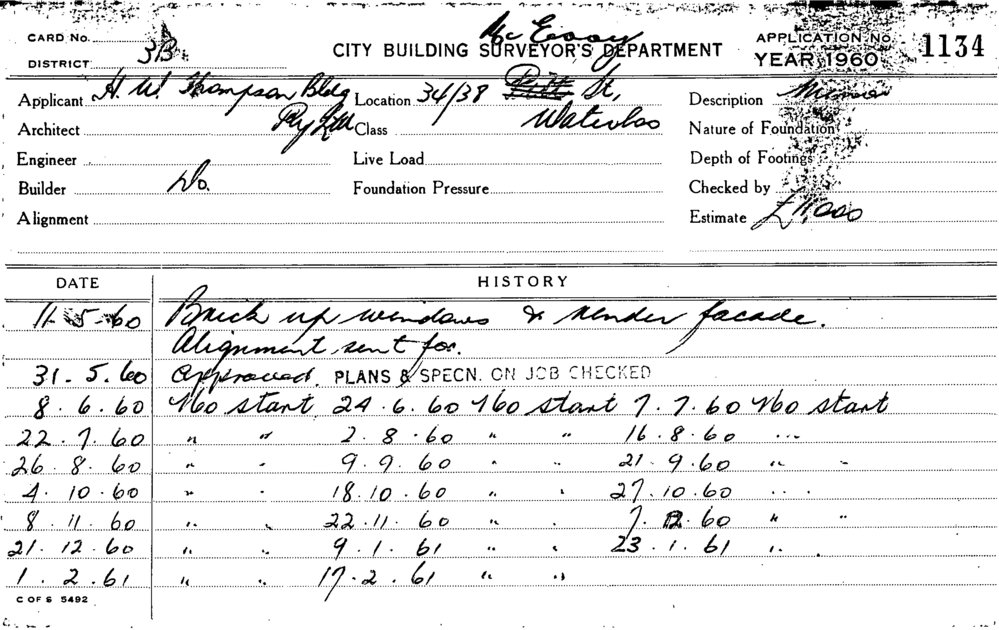 McEvoy
CARD No. CITY BUILDING SURVEYOR'S DEPARTMENT APPLICATION No. 1134
DISTRICT 3B YEAR 1960
Applicant H. W. Thompson Bldg Location 34/38 Pitt St, Description
Architect Pty Ltd Class Waterloo Nature of Foundation
Engineer Live Load Depth of Footings
Builder Do. Foundation Pressure Checked by
Alignment Estimate
DATE HISTORY
11-5-60 Brick up windows & render facade.
Alignment sent for.
31.5.60 Approved. PLANS & SPECN. ON JOB CHECKED
8.6.60 No start 24.6.60 No start 7.7.60 No start
22.7.60 " " 2.8.60 " " 16.8.60 " "
26.8.60 " " 9.9.60 " " 21.9.60 " "
4.10.60 " " 18.10.60 " " 27.10.60 " "
8.11.60 " " 22.11.60 " " 7.12.60 " "
21.12.60 " " 9.1.61 " " 23.1.61 " "
1.2.61 " " 17.2.61 " "
C OF S 5492